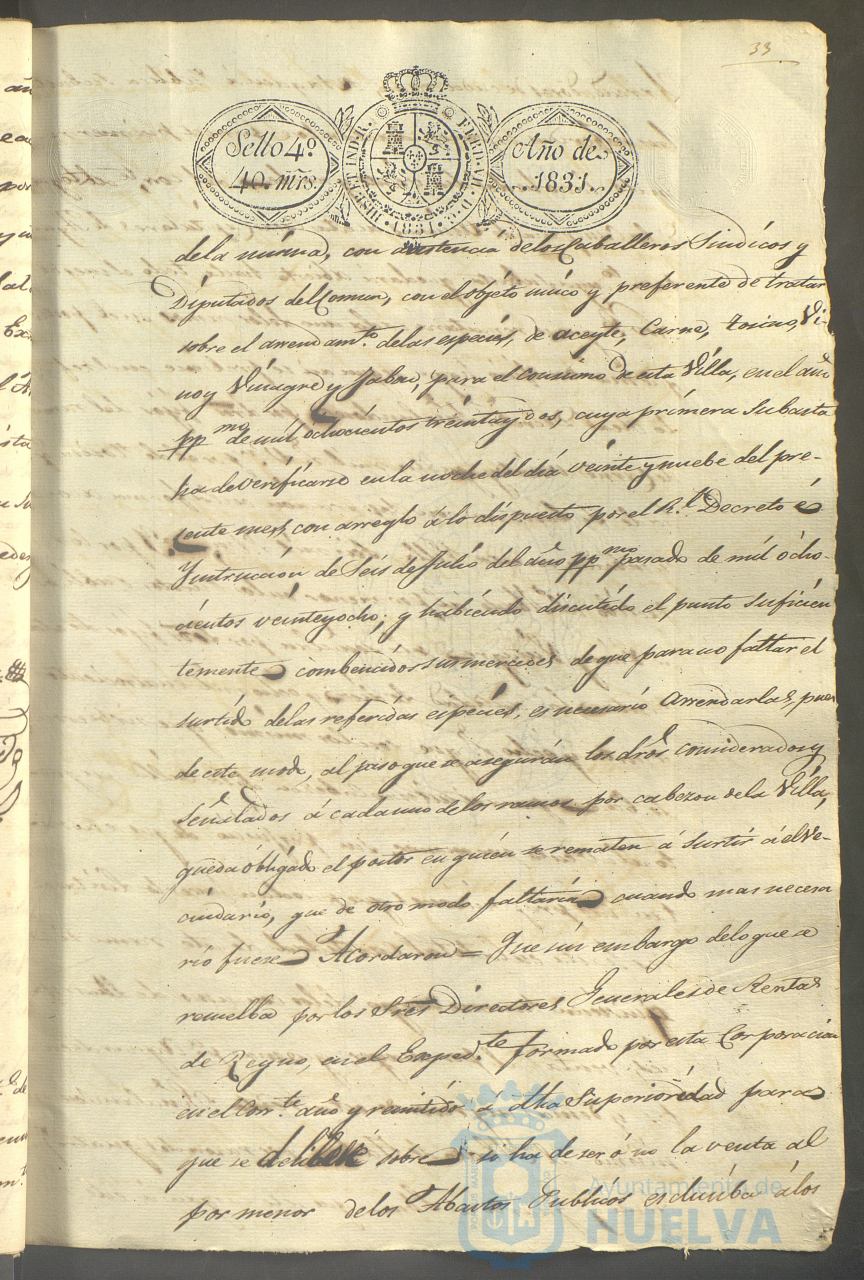 33
Sello 4º
40 mrs.
HISP. ET IND. R.
FERD. VII. D. G.
1831
Año de
1831
de la misma, con asistencia de los Caballeros Sindicos y
Diputados del Comun, con el objeto unico y preferente de tratar
sobre el arrendamto. de las especies, de aceyte, Carne, tocino, Vi-
no y Vinagre y Jabon, para el consumo de esta Villa, en el año
ppmo de mil ochocientos treinta y dos, cuya primera subasta
ha de verificarse en la noche del dia veinte y nuebe del pre-
sente mes, con arreglo á lo dispuesto por el Rl. Decreto é
Ynstruccion de Seis de Julio del año ppmo pasado de mil ocho-
cientos veinte y ocho; y habiendo discutido el punto suficien
temente combencidos sus mercedes de que para no faltar el
surtido de las referidas especies, es necesario arrendarlas, pues
de este modo, al paso que se aseguran los dros. considerados y
señalados á cada uno de los ramos por cabezon de la Villa,
queda obligado el postor en quien se rematen á surtir á el Ve-
cindario, que de otro modo faltaria cuando mas necesa
rio fuese Acordaron = Que sin embargo de lo que se
resuelba por los Sres Directores Generales de Rentas
de Reyno, en el Expedte. formado por esta Corporacion
en el Corrte. año y remitido á dha Superioridad para
que se delibere sobre si ha de ser ó no la venta al
por menor de los Abastos Publicos esclusiba á los
Ayuntamiento de
HUELVA